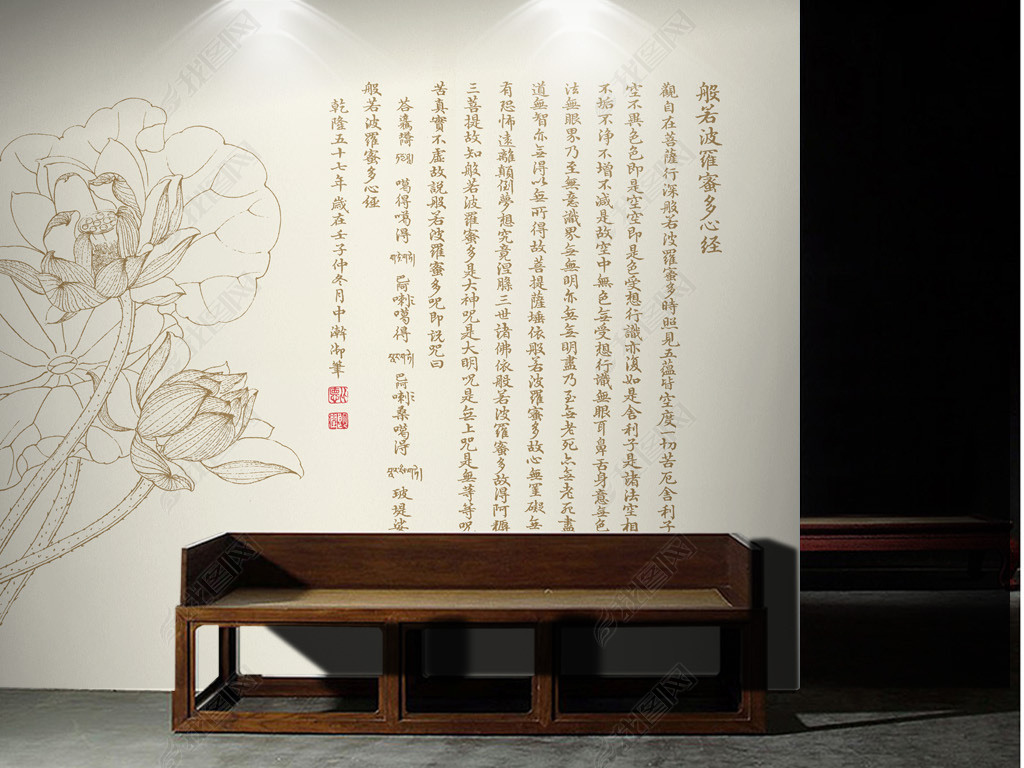 般若波羅蜜多心經
觀自在菩薩行深般若波羅蜜多時照見五蘊皆空度一切苦厄舍利子
空不異色色即是空空即是色受想行識亦復如是舍利子是諸法空相
不垢不淨不增不減是故空中無色無受想行識無眼耳鼻舌身意無色
法無眼界乃至無意識界無無明亦無無明盡乃至無老死亦無老死盡
道無智亦無得以無所得故菩提薩埵依般若波羅蜜多故心無罣礙無
有恐怖遠離顛倒夢想究竟涅槃三世諸佛依般若波羅蜜多故得阿耨
三菩提故知般若波羅蜜多是大神咒是大明咒是無上咒是無等等咒
苦真實不虛故說般若波羅蜜多咒即說咒曰
噶得噶得 噶得 桑噶得 玻堤娑
般若波羅蜜多心經
乾隆五十七年歲在壬子仲冬月中澣御筆